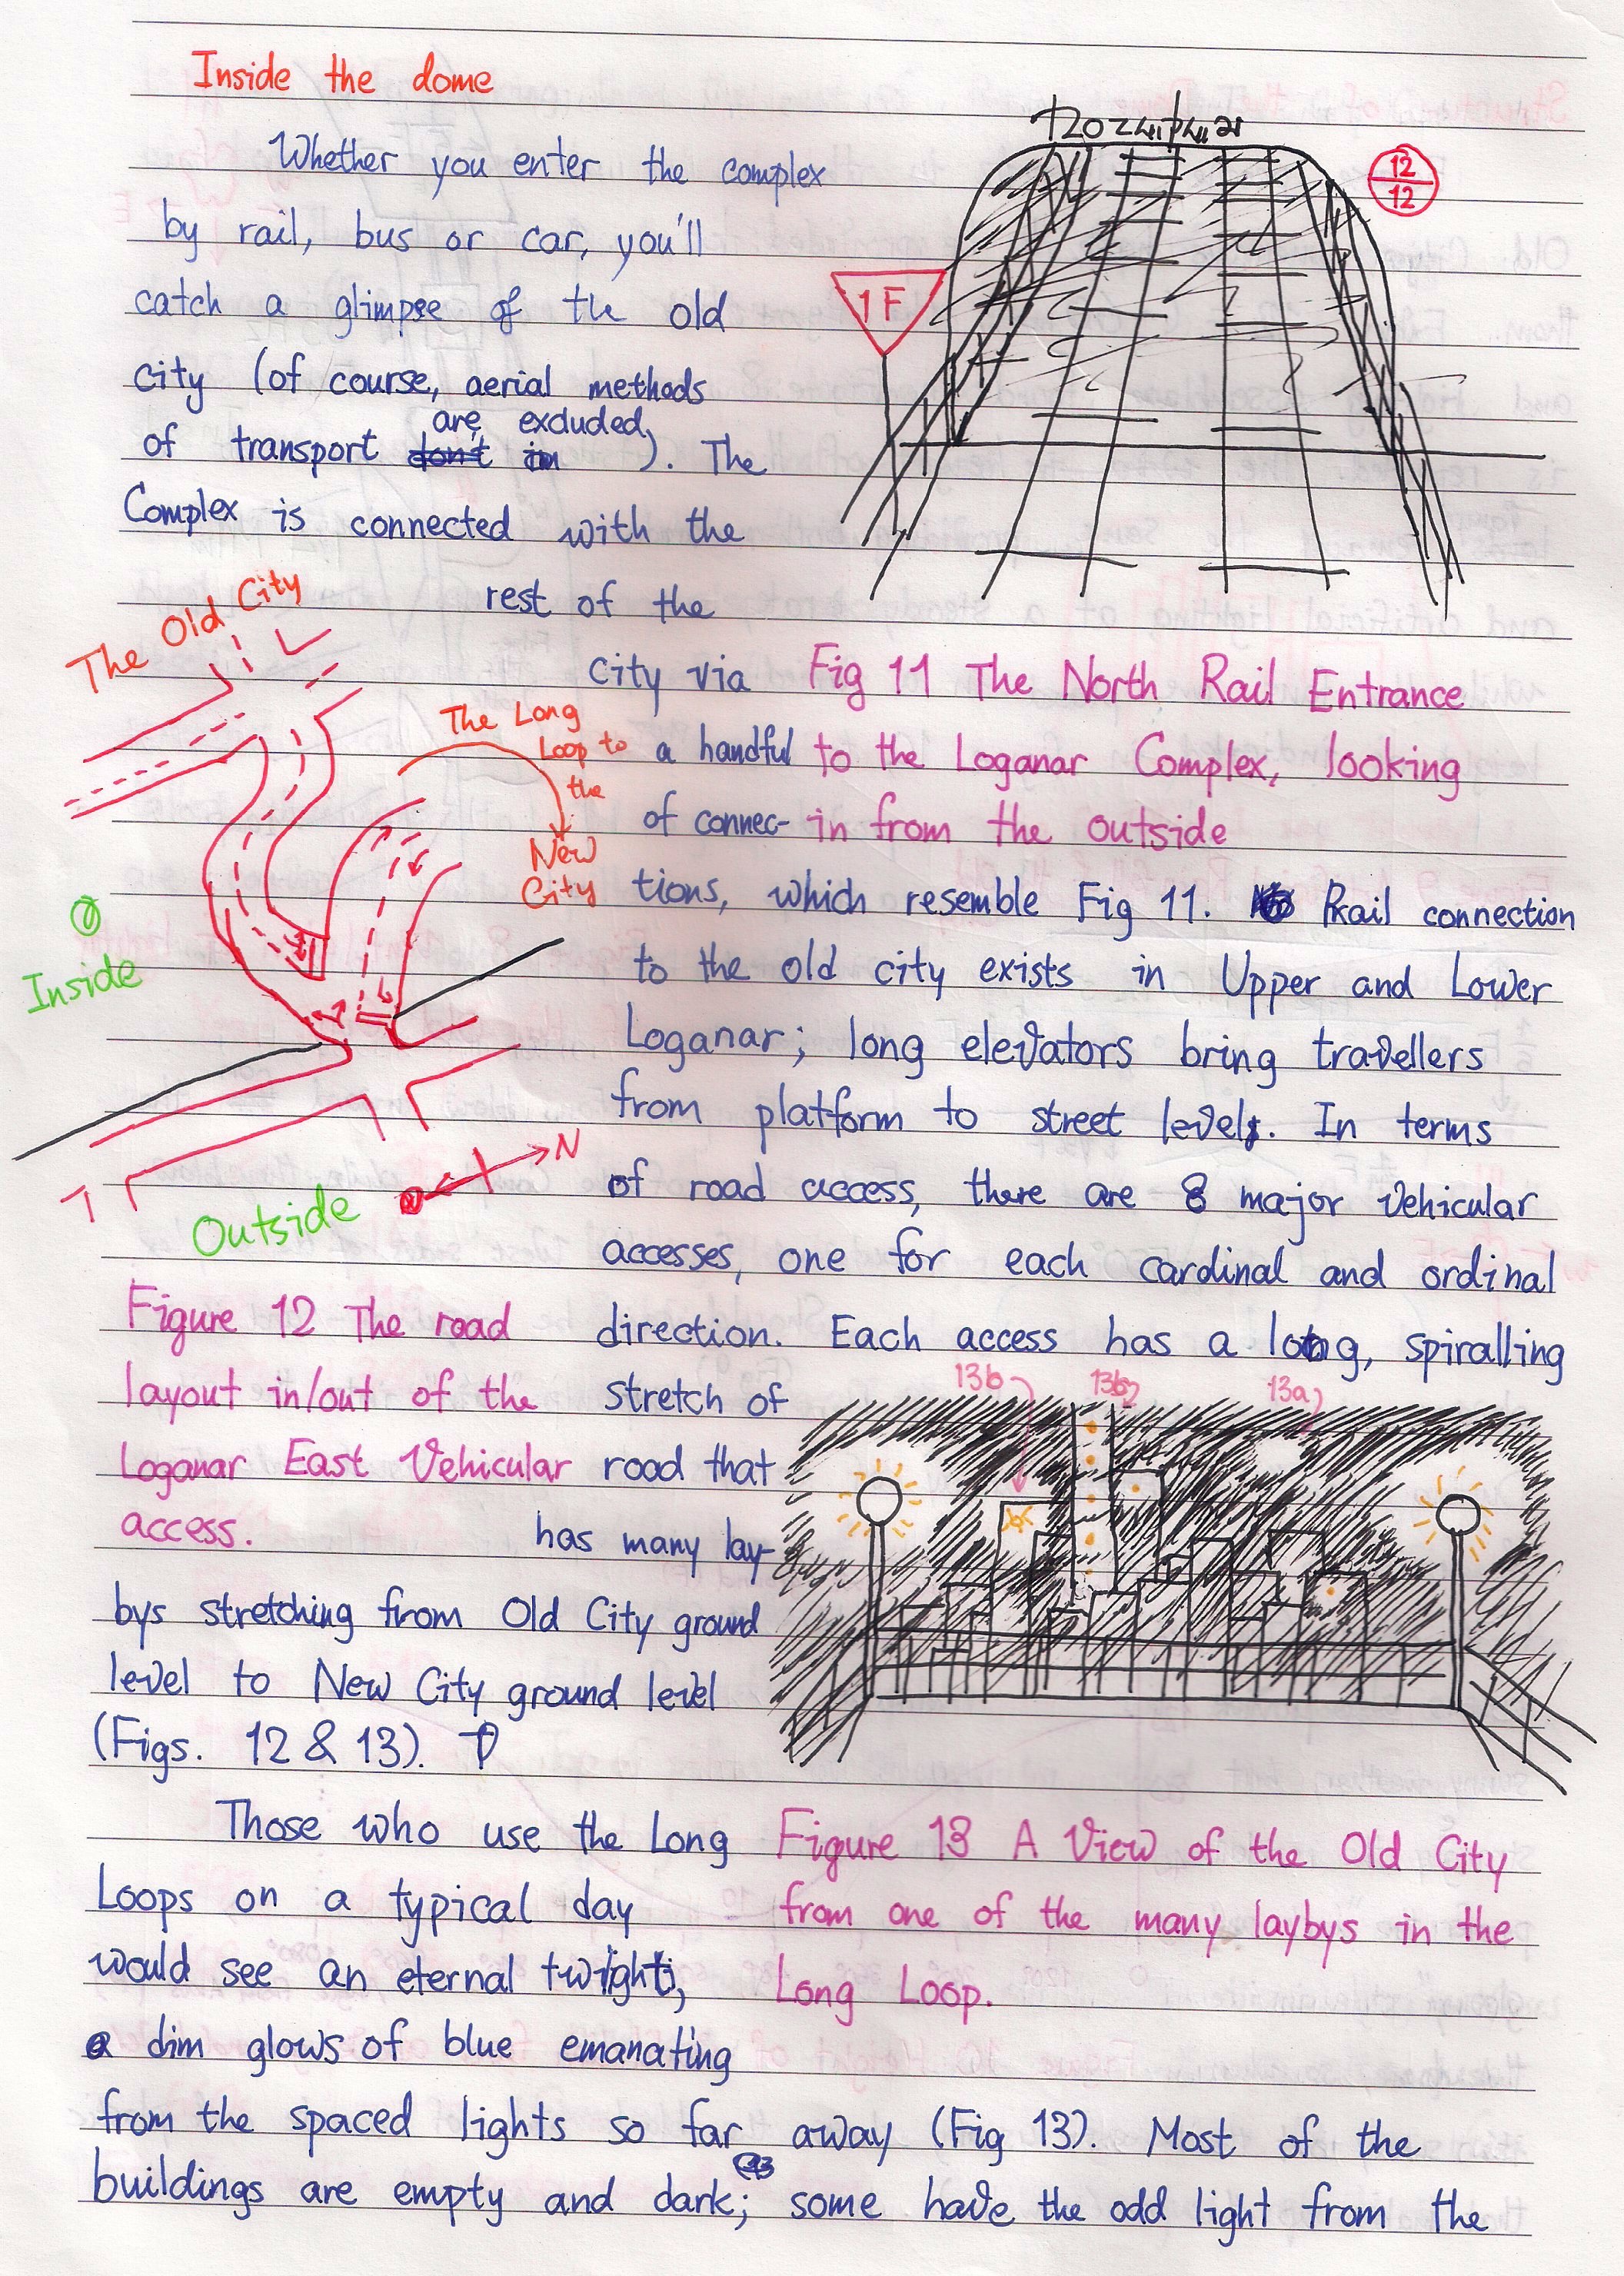 Inside the dome
Whether you enter the complex
by rail, bus or car, you'll
catch a glimpse of the old
city (of course, aerial methods
of transport are excluded). The
Complex is connected with the
rest of the
city via
a handful
of connec-
tions, which resemble Fig 11. Rail connection
to the old city exists in Upper and Lower
Loganar; long elevators bring travellers
from platform to street level. In terms
of road access, there are 8 major vehicular
accesses, one for each cardinal and ordinal
direction. Each access has a long, spiralling
stretch of
road that
has many lay-
bys stretching from Old City ground
level to New City ground level
(Figs. 12 & 13).
Those who use the Long
Loops on a typical day
would see an eternal twilight,
dim glows of blue emanating
from the spaced lights so far away (Fig 13). Most of the
buildings are empty and dark; some have the odd light from the
12
12
1F
Fig 11 The North Rail Entrance
to the Loganar Complex, looking
in from the outside
The Old City
The Long
Loop to
the
New
City
Inside
N
Outside
Figure 12 The road
layout in/out of the
Loganar East Vehicular
access.
13b
13b
13a
Figure 13 A View of the Old City
from one of the many laybys in the
Long Loop.